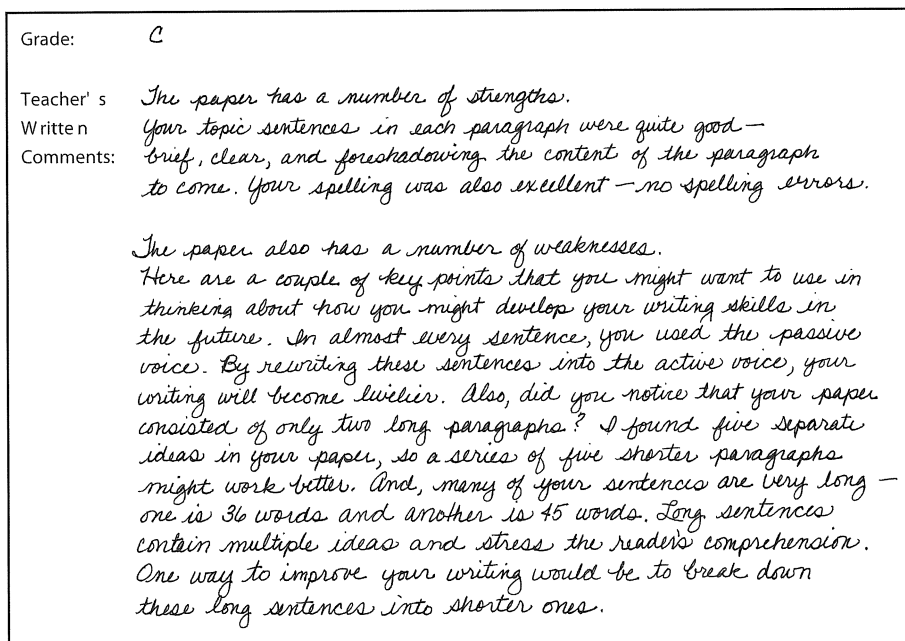 Grade: C
Teacher's The paper has a number of strengths.
Written Your topic sentences in each paragraph were quite good —
Comments: brief, clear, and foreshadowing the content of the paragraph
to come. Your spelling was also excellent — no spelling errors.
The paper also has a number of weaknesses.
Here are a couple of key points that you might want to use in
thinking about how you might develop your writing skills in
the future. In almost every sentence, you used the passive
voice. By rewriting these sentences into the active voice, your
writing will become livelier. Also, did you notice that your paper
consisted of only two long paragraphs? I found five separate
ideas in your paper, so a series of five shorter paragraphs
might work better. And, many of your sentences are very long —
one is 36 words and another is 45 words. Long sentences
contain multiple ideas and stress the reader's comprehension.
One way to improve your writing would be to break down
these long sentences into shorter ones.